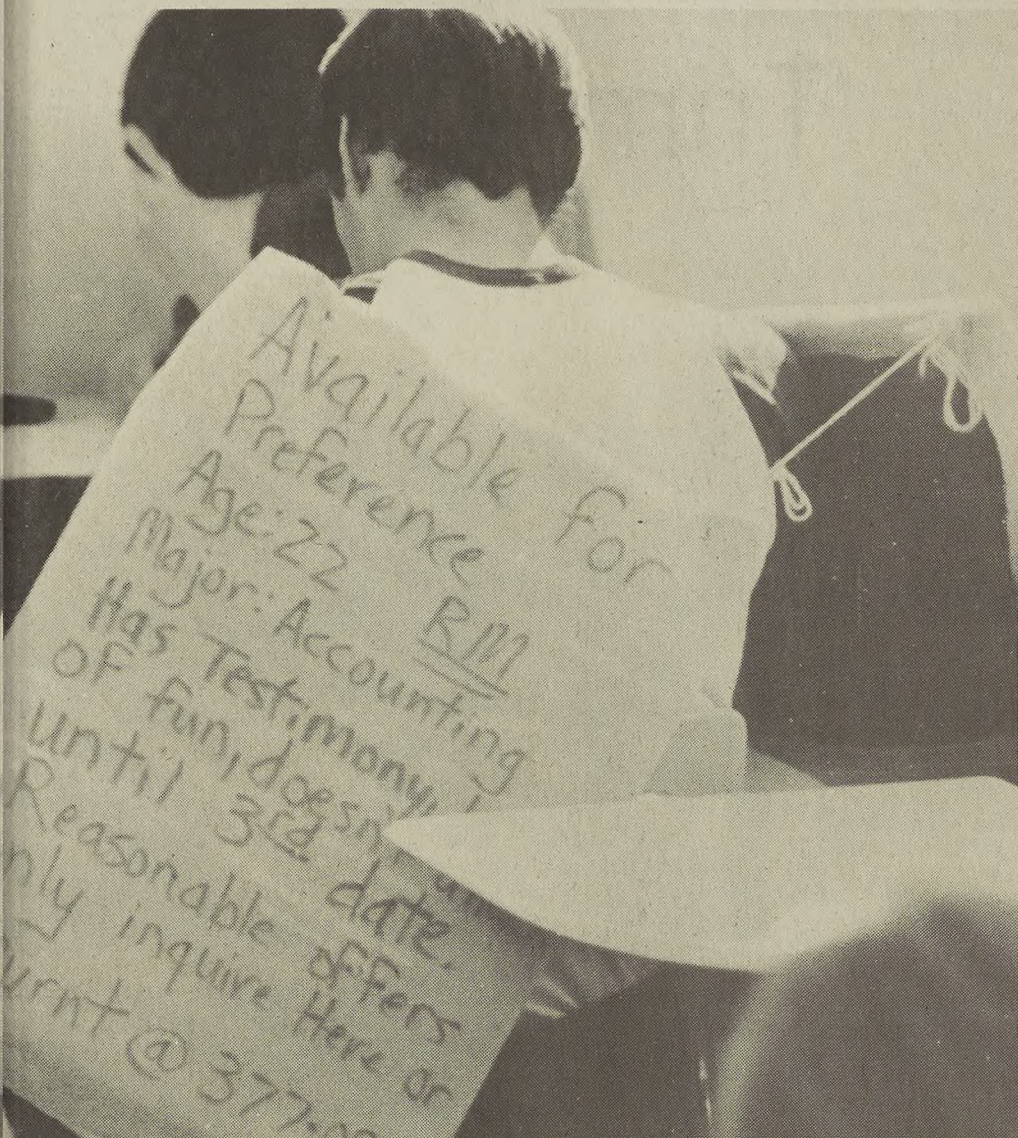 Available for
Preference
Age: 22 RM
Major: Accounting
Has Testimony,
of fun, doesn't
until 3rd date.
Reasonable offers
nly inquire Here or
urnt @ 377-